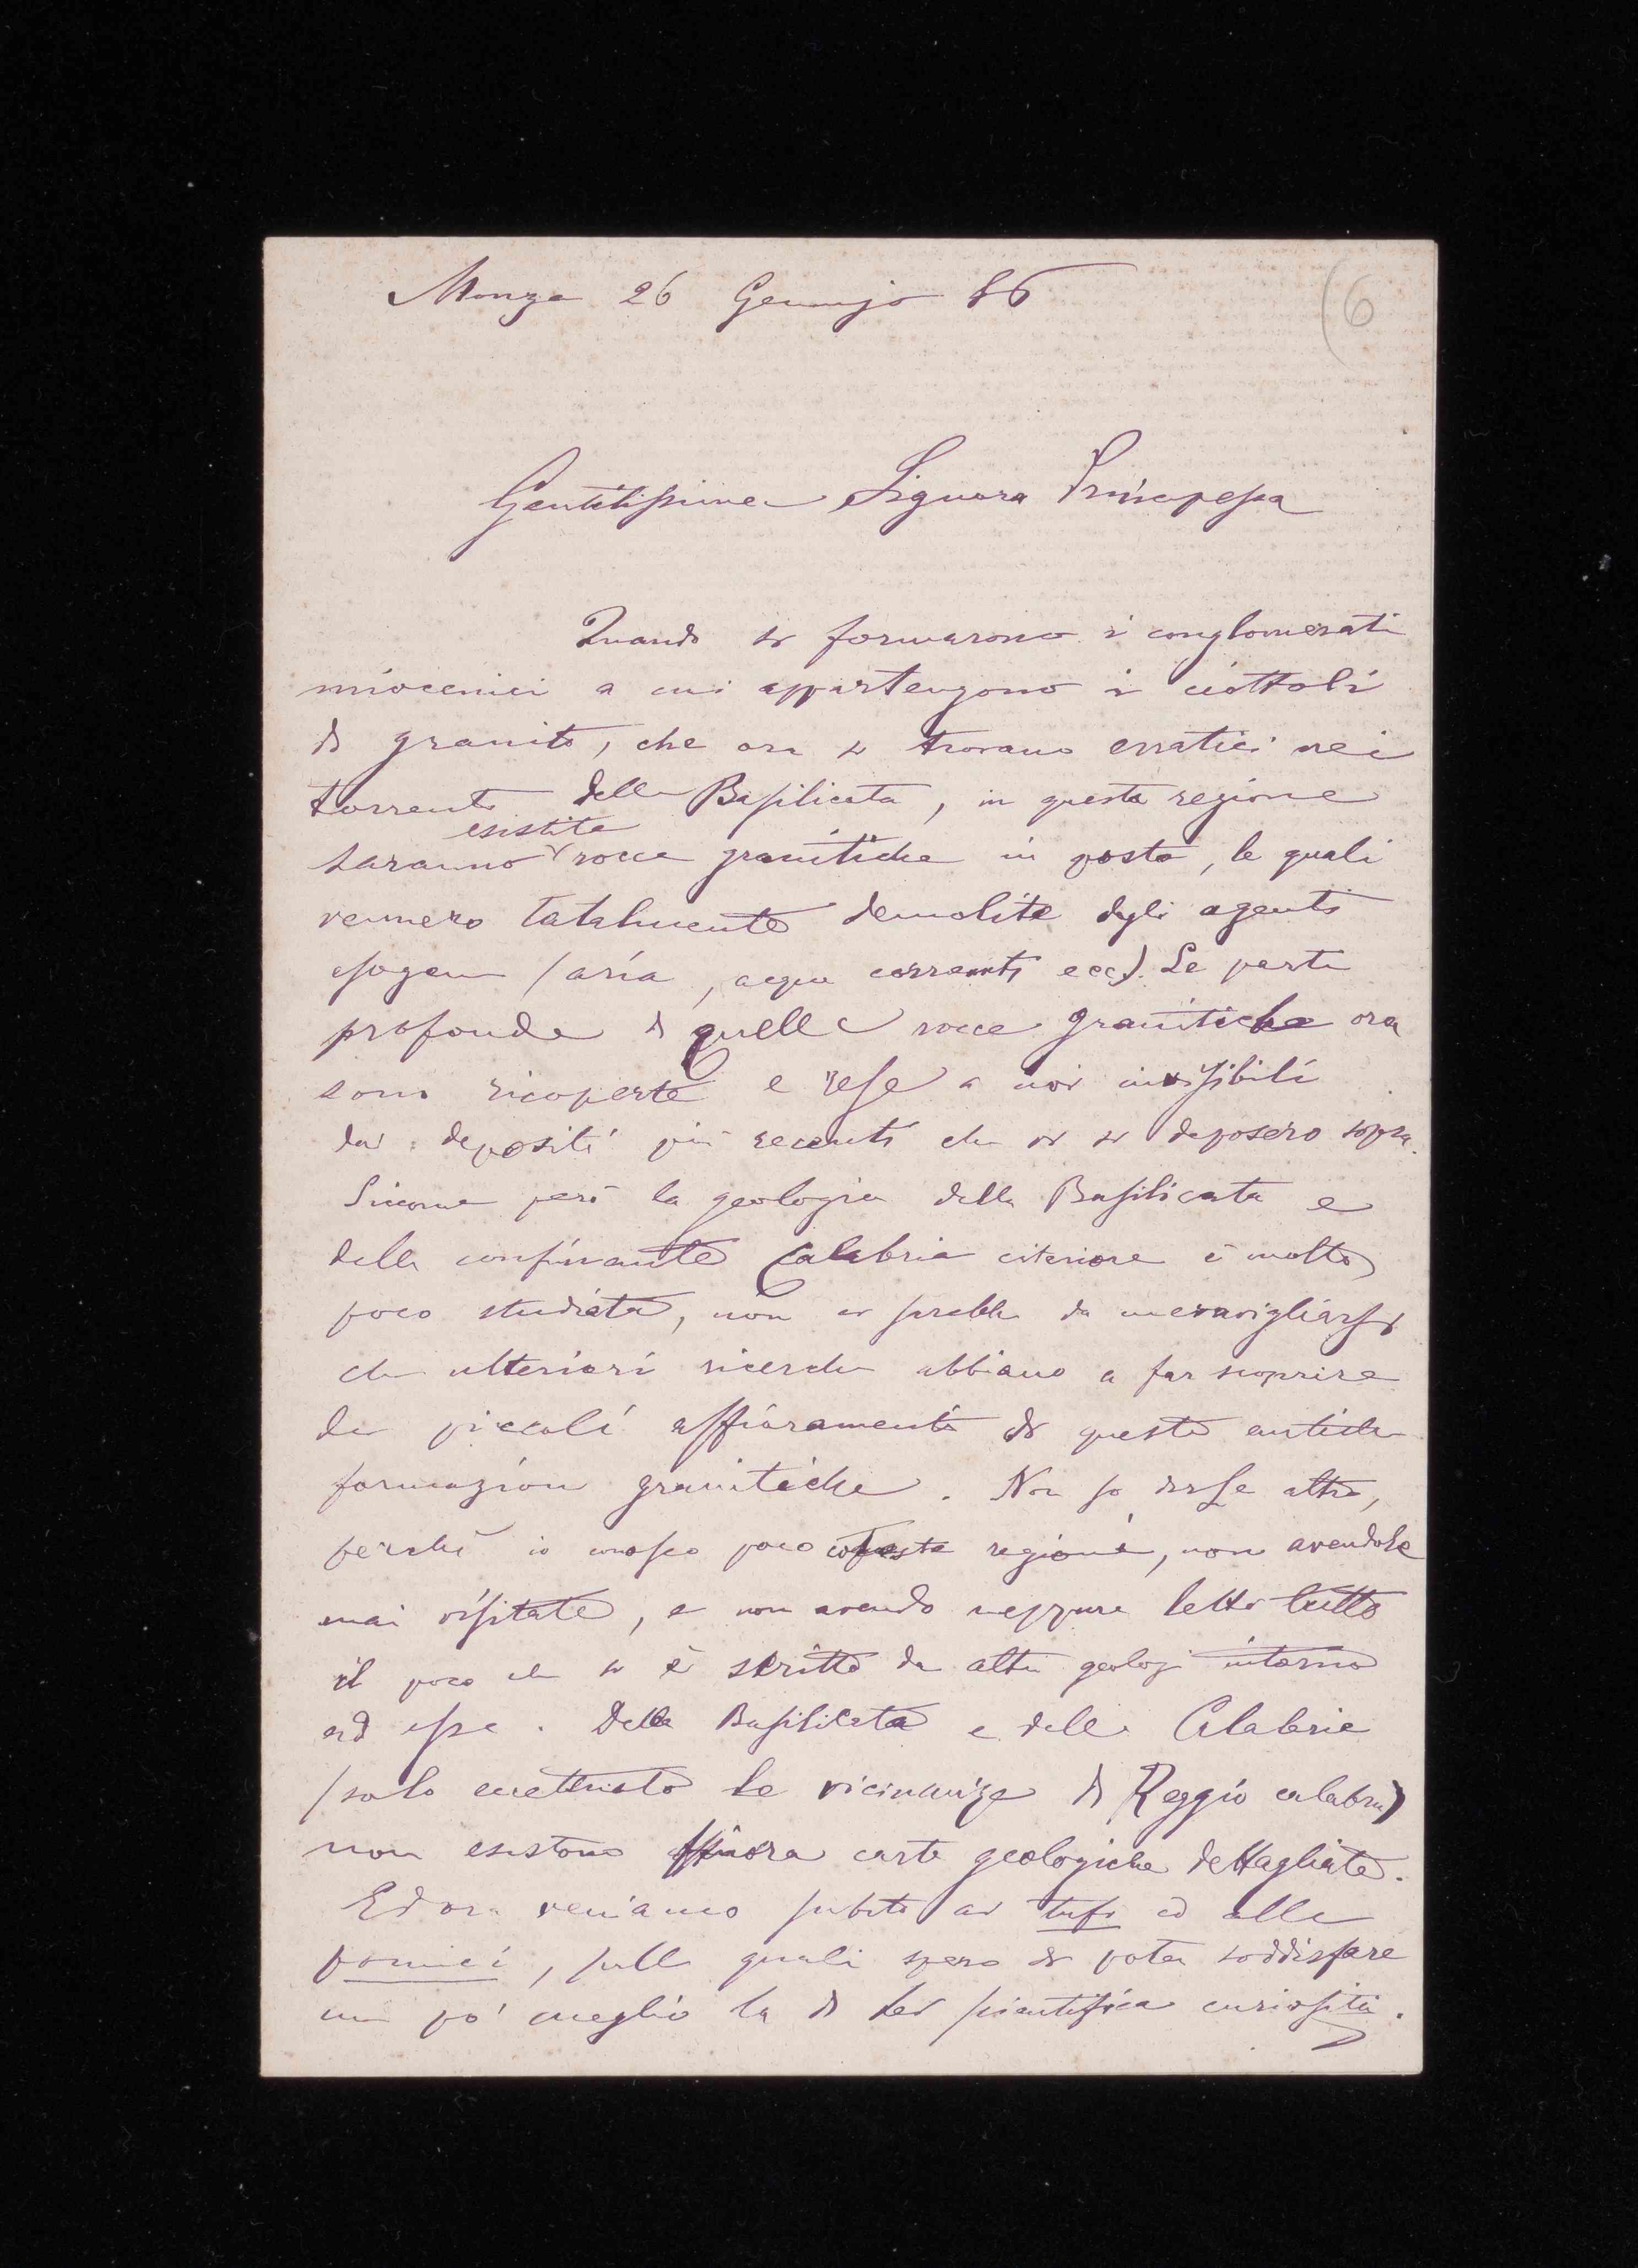 Monza 26 Gennajo 86
(6
Gentilissima Signora Principessa
Quando si formarono i conglomerati
miocenici a cui appartengono i ciottoli
di granito, che ora si trovano erratici nei
torrenti della Basilicata, in questa regione
esistite
saranno rocce granitiche in posto, le quali
vennero totalmente demolite dagli agenti
esogeni (aria, acque correnti ecc). Le parti
profonde di quelle rocce granitiche ora
sono ricoperte e rese a noi invisibili
dai depositi più recenti che vi si deposero sopra.
Siccome però la geologia della Basilicata e
della confinante Calabria citeriore è molto
poco studiata, non vi sarebbe da meravigliarsi
che ulteriori ricerche abbiano a far scoprire
dei piccoli affioramenti di queste antiche
formazioni granitiche. Non so dirle altro,
perchè io conosco poco coteste regioni, non avendole
mai visitate, e non avendo neppure letto tutto
il poco che si è scritto da altri geologi intorno
ad esse. Della Basilicata e della Calabria
(solo eccettuato le vicinanze di Reggio calabria)
non esistono finora carte geologiche dettagliate.
Ed ora veniamo subito ai tufi ed alle
pomici, sulle quali spero di poter soddisfare
un po' meglio la di Lei scientifica curiosità.